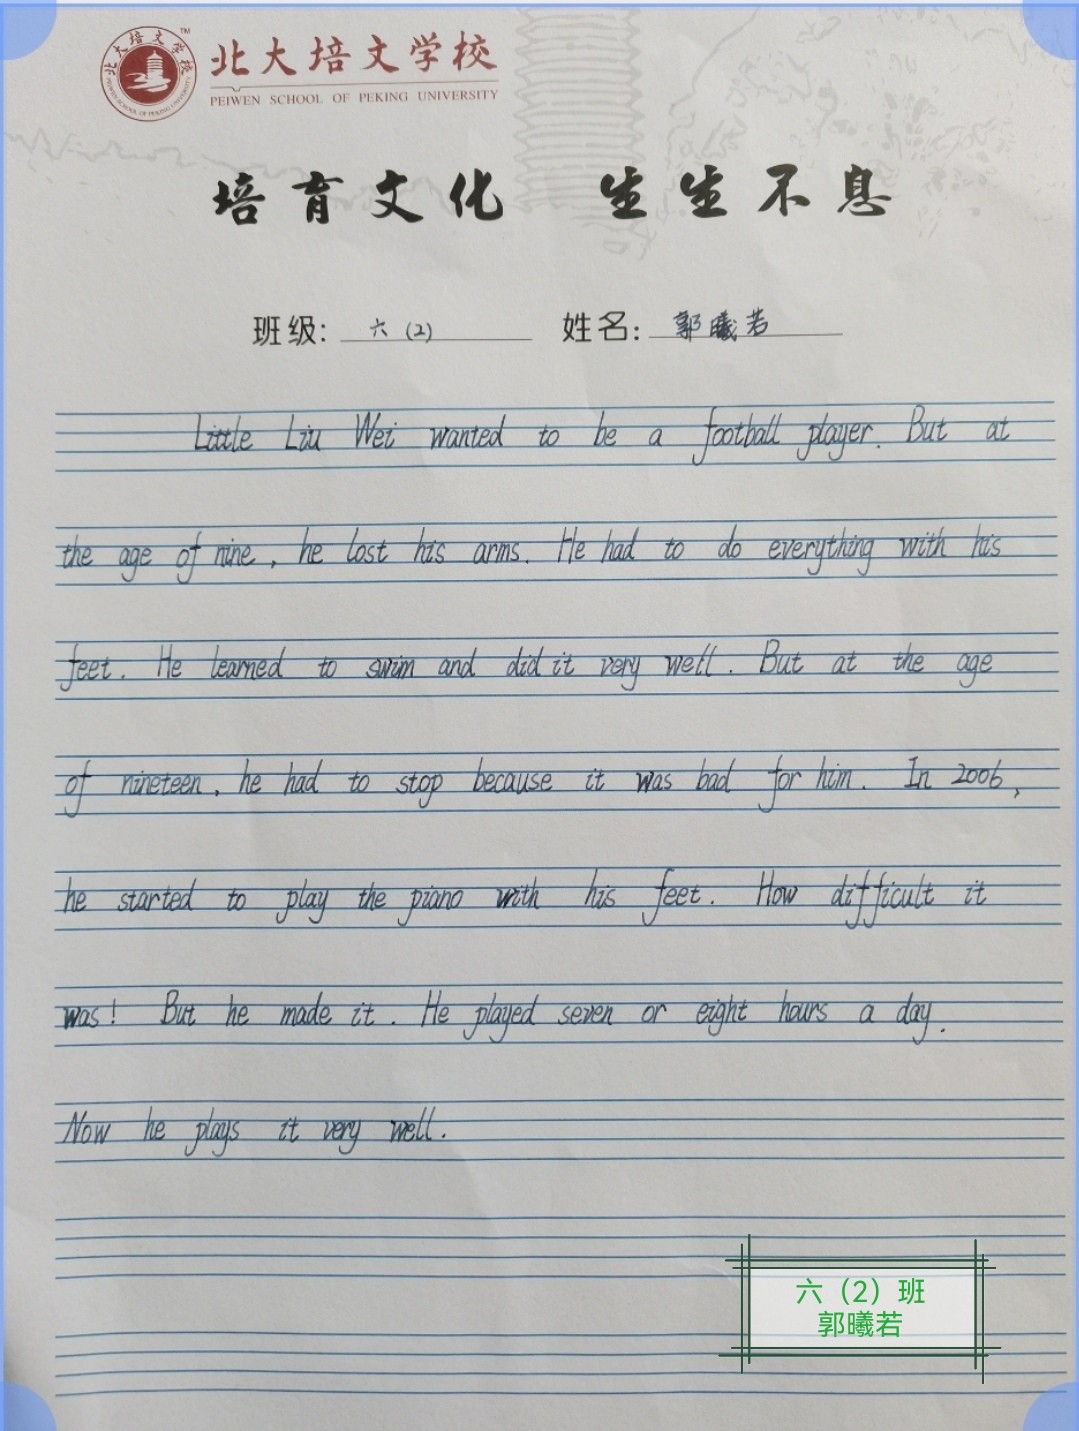 北大培文学校
PEIWEN SCHOOL OF PEKING UNIVERSITY
培育文化 生生不息
班级: 六(2) 姓名: 郭曦若
Little Liu Wei wanted to be a football player. But at
the age of nine, he lost his arms. He had to do everything with his
feet. He learned to swim and did it very well. But at the age
of nineteen, he had to stop because it was bad for him. In 2006,
he started to play the piano with his feet. How difficult it
was! But he made it. He played seven or eight hours a day.
Now he plays it very well.
六（2）班
郭曦若